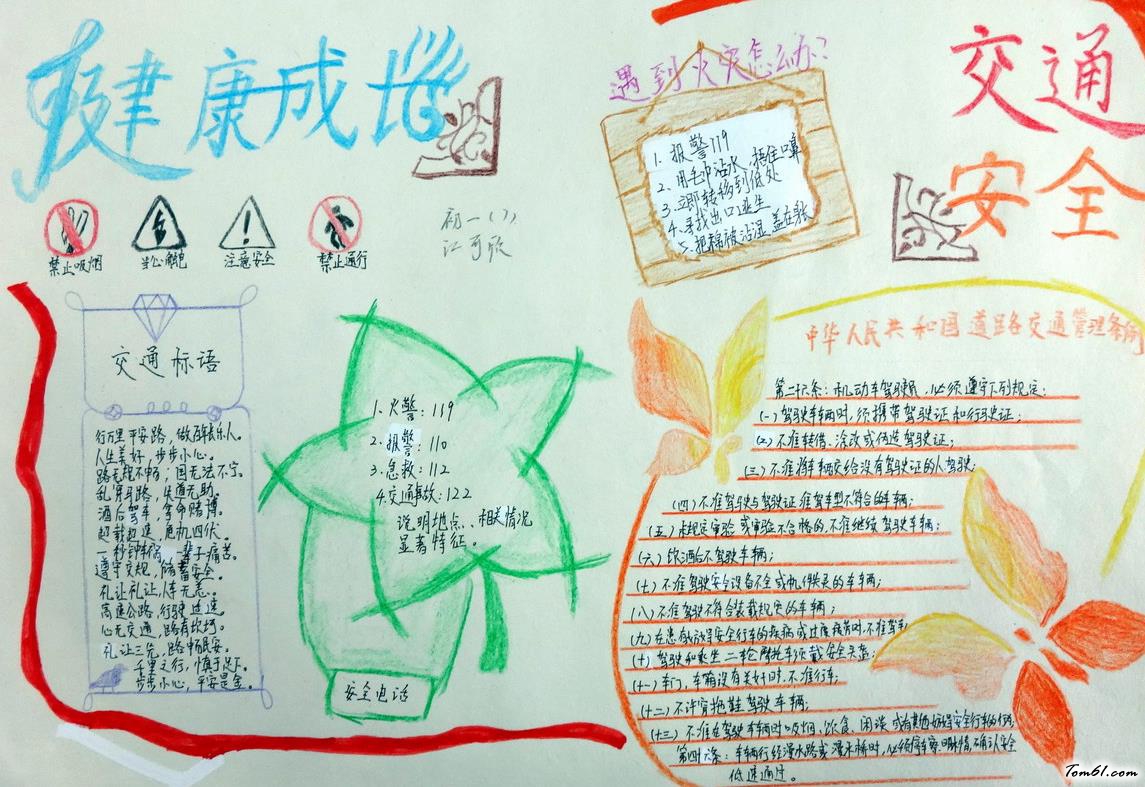 健康成长
禁止吸烟
当心触电
注意安全
禁止通行
初一(7)
江可欣
遇到火灾怎么办？
1. 报警119
2. 用毛巾沾水，捂住口鼻
3. 立即转移到低处
4. 寻找出口逃生
5. 把棉被沾湿 盖在身
交通
安全
交通标语
行万里平安路，做百年长乐人。
人生美好，步步小心。
路无规不畅，国无法不宁。
乱穿马路，失道无助。
酒后驾车，拿命赌博。
超载超速，危机四伏。
一秒钟车祸 一辈子痛苦。
遵守交规，储蓄安全。
礼让礼让，人车无恙。
高速公路，行驶过速
心无交通，路有坎坷。
礼让三先，路中民安。
千里之行，慎于足下。
步步小心，平安是金。
1. 火警：119
2. 报警：110
3. 急救：112
4. 交通事故：122
说明地点、相关情况
显著特征。
安全电话
中华人民共和国道路交通管理条例
第二十六条：机动车驾驶员，必须遵守下列规定：
(一) 驾驶车辆时，须携带驾驶证和行驶证；
(二) 不准转借、涂改或伪造驾驶证；
(三) 不准将车辆交给没有驾驶证的人驾驶；
(四) 不准驾驶与驾驶证准驾车型不符合的车辆；
(五) 未规定审验或审验不合格的，不准继续驾驶车辆；
(六) 饮酒后不驾驶车辆；
(七) 不准驾驶安全设备不全或机件失灵的车车辆；
(八) 不准驾驶不符合装载规定的车辆；
(九) 在患有妨碍安全行车的疾病或过度疲劳时，不准驾车
(十) 驾驶和乘坐二轮摩托车须戴安全头盔；
(十一) 车门、车厢没有关好时，不准行车；
(十二) 不许穿拖鞋驾驶车辆；
(十三) 不准在驾驶车辆时吸烟、饮食、闲谈或有其他妨碍安全行车的行为
第四十六条：车辆行经漫水路或漫水桥时，必须停车察明水情，确认安全
低速通过。
Tom61.com